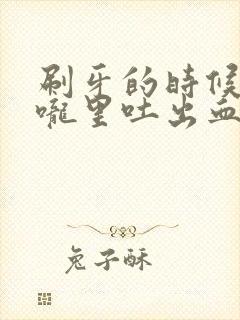 刷牙的時候
嚨里吐出血
兔子酥